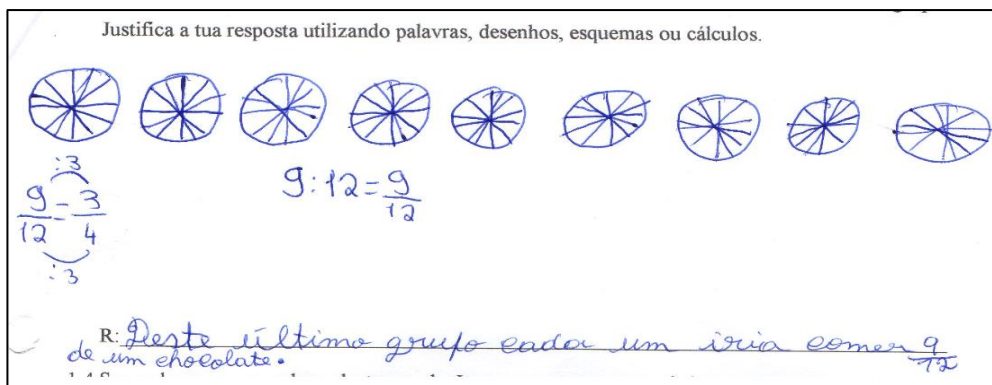 Justifica a tua resposta utilizando palavras, desenhos, esquemas ou cálculos.
:3
9/12 = 3/4
:3
9:12 = 9/12
R: Deste último grupo cada um iria comer 9/12
de um chocolate.